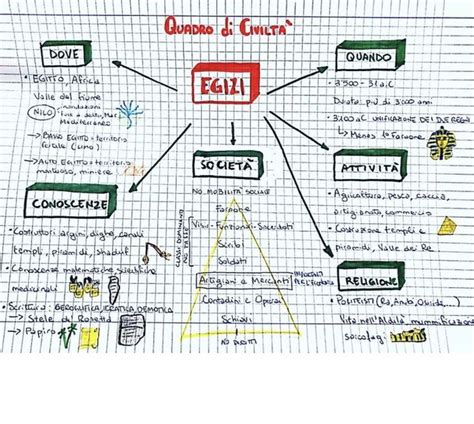 QUADRO di CIVILTÀ
DOVE
• EGITTO, Africa
Valle del fiume
NILO
inondazioni
Mediterraneo
→ BASSO EGITTO = territorio
fertile (limo)
→ ALTO EGITTO = territorio
montuoso, miniere
EGIZI
QUANDO
• 3500 - 31 a.C
Durata: più di 3000 anni
• 3100 a.C UNIFICAZIONE DEI DUE REGNI
↳ Menes 1° Faraone
CONOSCENZE
• Costruttori argini, dighe, canali
templi, piramidi, shaduf
• Conoscenze matematiche, scientifiche
medicinali
• Scrittura: GEROGLIFICA, IERATICA, DEMOTICA
→ Stele di Rosetta
→ Papiro
SOCIETÀ
NO MOBILITÀ SOCIALE
Faraone
Visir - Funzionari - Sacerdoti
Scribi
Soldati
Artigiani e Mercanti
Contadini e Operai
Schiavi
NO DIRITTI
CLASSI DOMINANTI
NO TASSE
ATTIVITÀ
• Agricoltura, pesca, caccia,
artigianato, commercio
• Costruzione templi e
piramidi, Valle dei Re
RELIGIONE
• POLITEISTI (Ra, Anubi, Osiride...)
Vita nell'Aldilà, mummificazione
sarcofagi